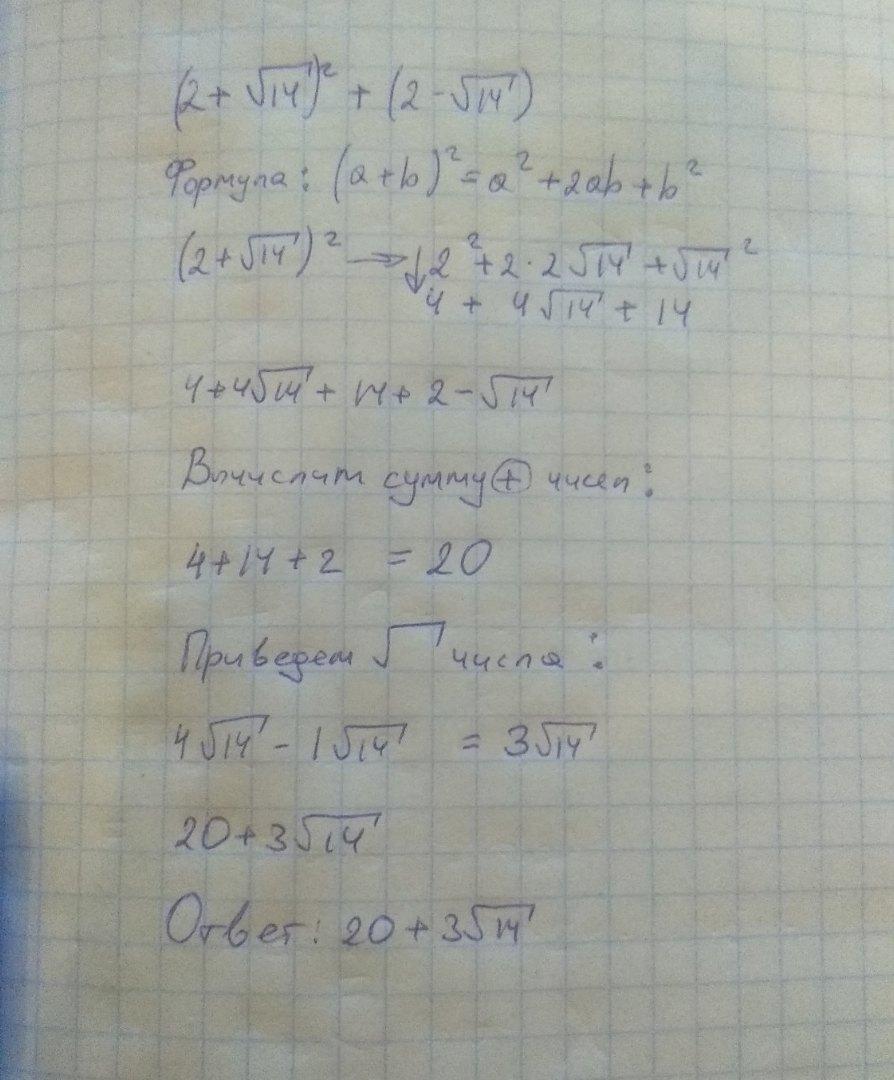 (2+√14)² + (2-√14)
Формула: (a+b)²=a²+2ab+b²
(2+√14)² → ↓ 2²+2·2√14+√14²
4 + 4√14 + 14
4+4√14+14+2-√14
Вычислим сумму ⊕ чисел:
4+14+2 = 20
Приведем √ числа:
4√14 - 1√14 = 3√14
20+3√14
Ответ: 20+3√14